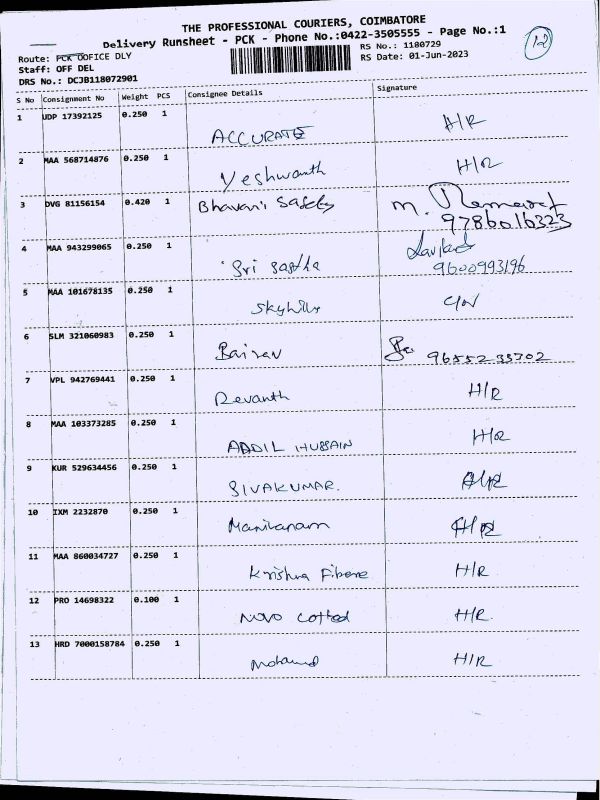 THE PROFESSIONAL COURIERS, COIMBATORE
Delivery Runsheet - PCK - Phone No.:0422-3505555 - Page No.:1
12
Route: PCK OOFICE DLY
RS No.: 1180729
Staff: OFF DEL
RS Date: 01-Jun-2023
DRS No.: DCJB118072901
S No Consignment No Weight PCS Consignee Details Signature
1 UDP 17392125 0.250 1 ACCURATE H/R
2 MAA 568714876 0.250 1 Yeshwanth H/R
3 DVG 81156154 0.420 1 Bhavani Safety M.
9786016323
4 MAA 943299065 0.250 1 Sri Sastha
9600993196
5 MAA 101678135 0.250 1 Skyhills
6 SLM 321060983 0.250 1 Bairav 9655235702
7 VPL 942769441 0.250 1 Revanth H/R
8 MAA 103373285 0.250 1 ADDIL HUSSAIN H/R
9 KUR 529634456 0.250 1 SIVAKUMAR. H/R
10 IXM 2232870 0.250 1 H/R
11 MAA 860034727 0.250 1 Krishna Fibere H/R
12 PRO 14698322 0.100 1 NOVO Cotted H/R.
13 HRD 7000158784 0.250 1 Mohamed H/R